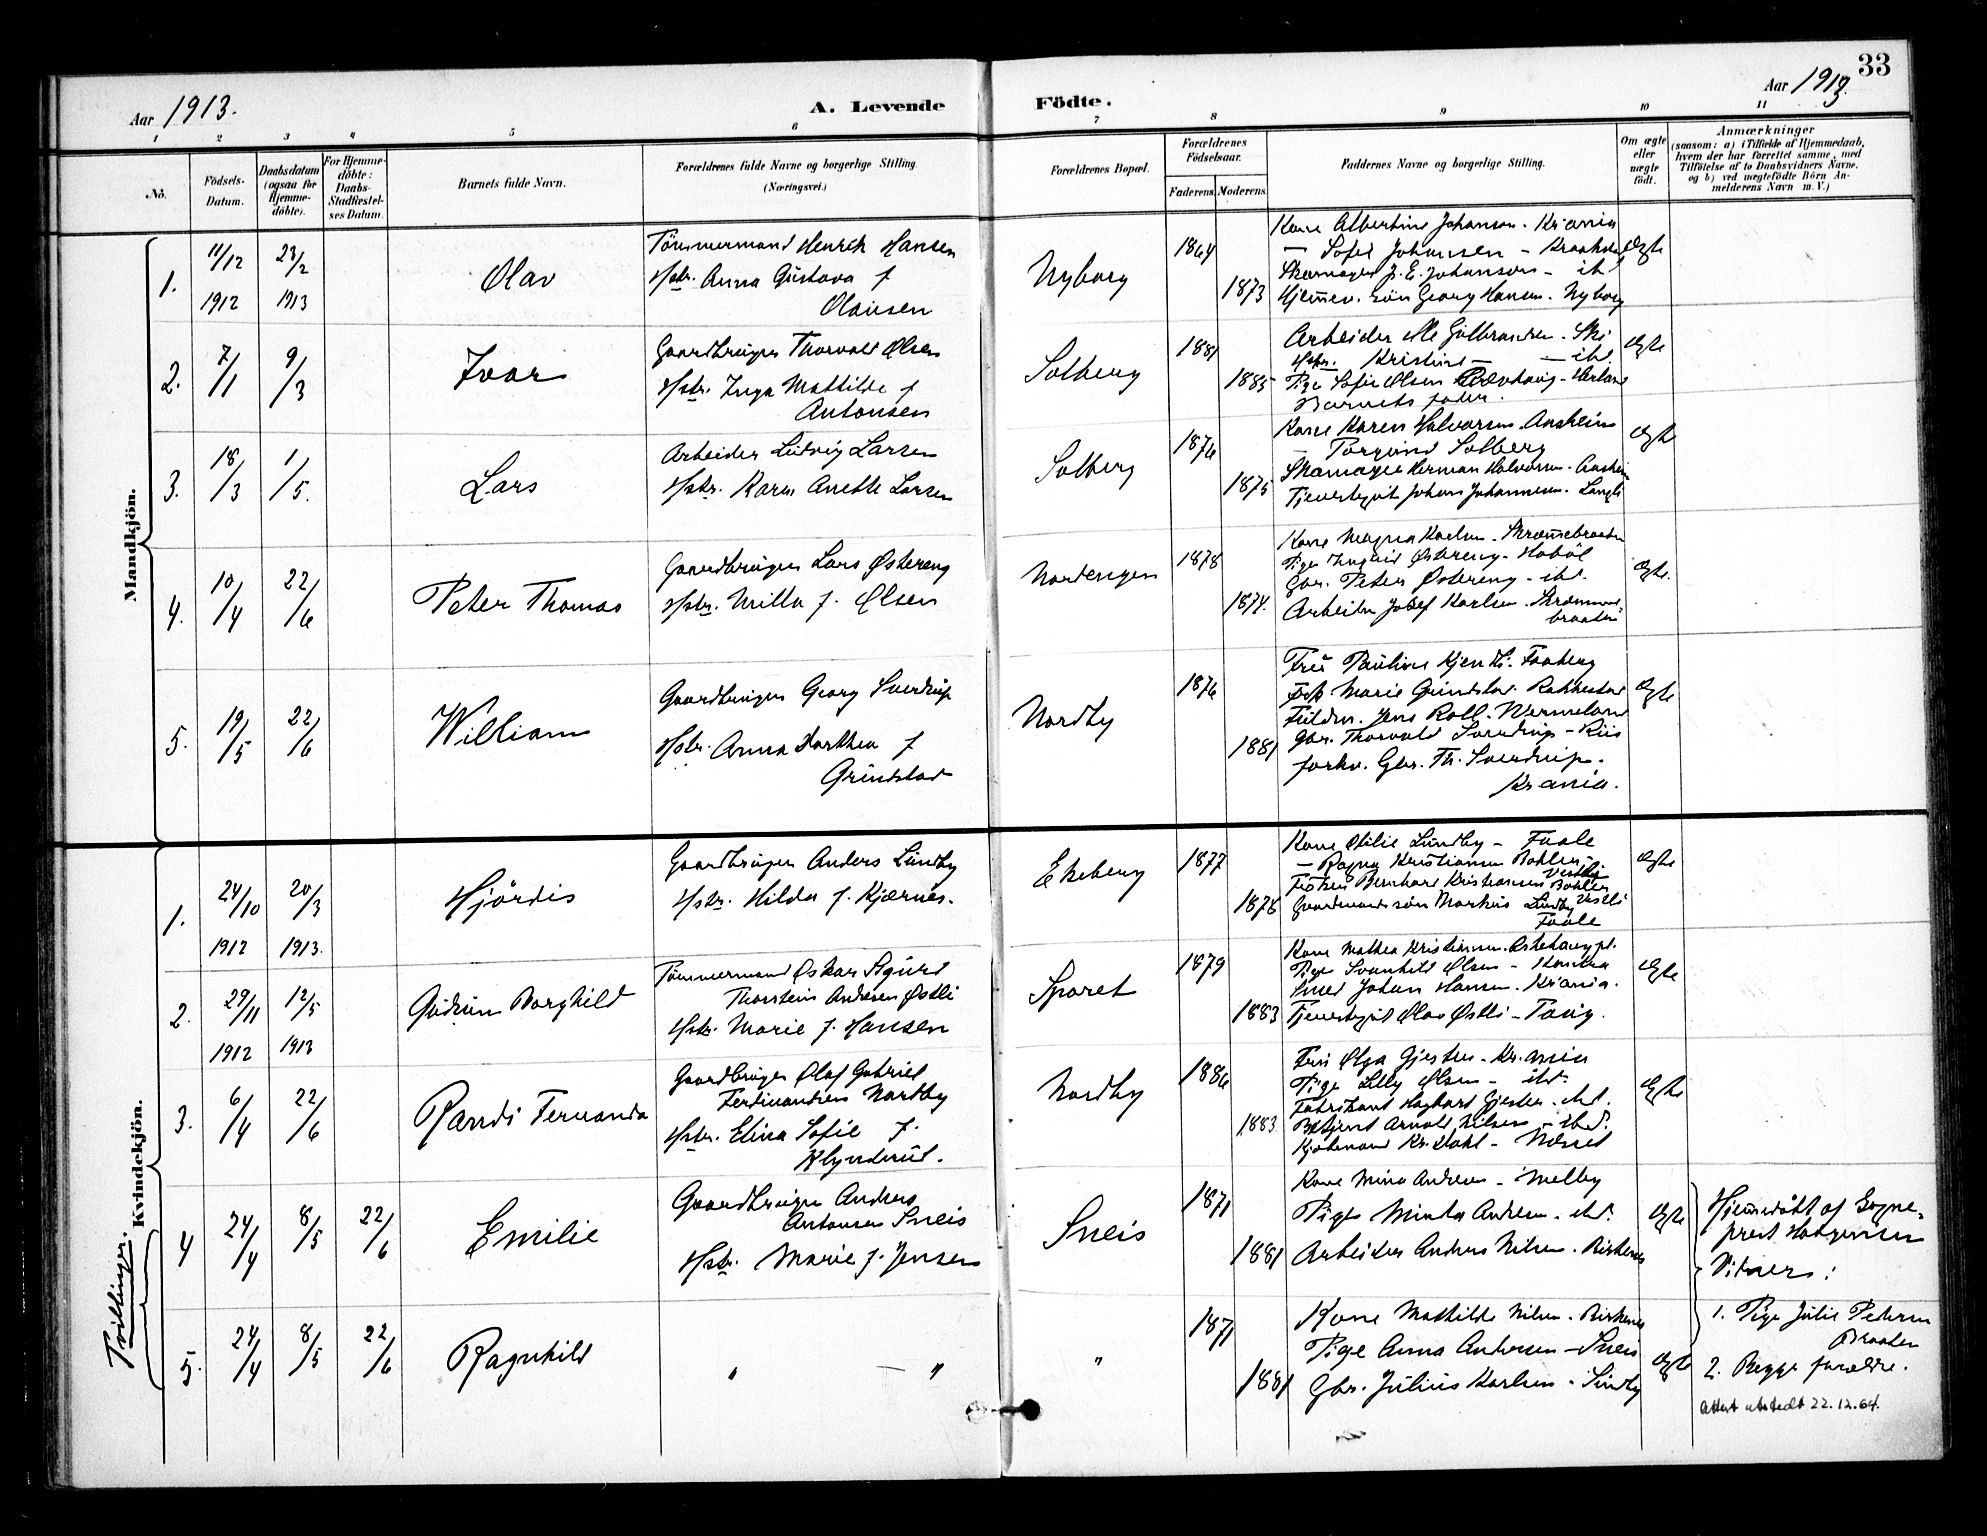 33
Aar 1913.
A. Levende Födte.
Aar 1913.
1 2 3 4 5 6 7 8 9 10 11
No.
Födsels-
Datum.
Daabsdatum
(ogsaa for
Hjemme-
döbte).
For Hjemme-
döbte:
Daabs-
Stadfæstel-
ses Datum.
Barnets fulde Navn.
Forældrenes fulde Navne og borgerlige Stilling.
(Næringsvei.)
Forældrenes Bopæl.
Forældrenes
Födselsaar.
Faderens. Moderens.
Faddernes Navne og borgerlige Stilling.
Om ægte
eller
uægte
födt.
Anmærkninger
(saasom: a) i Tilfælde af Hjemmedaab,
hvem der har forrettet samme, med
Tilföielse af to Daabsvidners Navne.
og b) ved uægtefödte Börn An-
melderens Navn m. V.)
Mandkjön.
1.
11/12
1912
23/2
1913
Olav
Tömmermand Henrik Hansen
Hstr. Anna Gustava f
Olausen
Nyborg
1864
1873
Kone Albertine Johansen - Kr.ania
— Sofie Johansen -
Skomager J. E. Johansen - ibd
Hjemmev. sön Georg Hansen. Nyborg
Ægte
2.
7/1
9/3
Ivar
Gaardbruger Thorvald Olsen
Hstr. Inga Mathilde f
Antonsen
Solberg
1881
1885
Arbeider Ole Gulbrandsen. Ski
Hstr. Kristine — — ibd.
Pige Sofie Olsen
Barnets fader.
Ægte
3.
18/3
1/5.
Lars
Arbeider Ludvig Larsen
Hstr. Karen Anette Larsen
Solberg
1876
1875
Kone Karen Halvorsen Aasheim
— Torgund Solberg
Skomager Herman Halvorsen. Aasheim
Tjenestegut Johan Johannesen. Langli
Ægte
4.
10/4
22/6
Peter Thomas
Gaardbruger Lars Østereng
Hstr. Milla f. Olsen
Nordengen
1878
1874.
Kone Magna Karlsen - Strømmebraaten
Pige Ingrid Østereng - Hobøl
Gbr. Peter Østereng - ibd.
Arbeider Josef Karlsen. Strømme-
braaten
Ægte.
5.
19/5
22/6
William
Gaardbruger Georg Sverdrup
Hstr. Anna Dorthea f
Grindstad
Nordby
1876
1881
Frü Pauline Kjendli. Faaberg
Frk. Marie Grindstad. Rakkestad
Fuldm. Jens Roll. Wermeland
Gbr. Thorvald Sverdrup - Riis
forhv. Gbr. Th. Sverdrup.
Kr.ania.
Ægte
Kvindekjön.
1.
24/10
1912
20/3
1913.
Hjördis
Gaardbruger Anders Lündby
Hstr. Hilda f. Kjærnes.
Ekeberg
1877
1878
Kone Otilie Lündby - Faale
— Ragna Kristiansen Bohler -
Vestby
Bernhard Kristiansen Bohler
Gaardmands sön Markus Lündby
Faale
Ægte
2.
29/11
1912
12/5
1913
Gudrun Borghild
Tömmermand Oskar Sigurd
Thorstein Andersen Østli
Hstr. Marie f. Hansen
Sporet
1879
1883
Kone Mathea Kristiansen. Askehaugpl.
Pige Svanhild Olsen -
Smed Johan Hansen. Kr.ania.
Tjenestegut Olav Østli - Taüg.
Ægte
3.
6/4
22/6
Randi Fernanda
Gaardbruger Olaf Gabriel
Ferdinandsen Nordby
Hstr. Elina Sofie f.
Klynderud.
Nordby
1886
1883
Frü Olga Gjester - Kr.ania
Pige Lilly Olsen - ibd.
Fabrikant Haghart Gjester. ibd.
Betjent Arnold Nilsen - ibd.
Kjöbmand Kr. Dahl - Næsset
Ægte
Tvillinger.
4
24/4
8/5
22/6
Emilie
Gaardbruger Anders
Antonsen Sneis
Hstr. Marie f. Jensen
Sneis
1871
1881
Kone Mina Andersen - Melby
Pige Minda Andersen. ibd.
Arbeider Anders Nilsen. Birkenes
Ægte
Hjemmedöbt af Sogne-
prest Haagensen
Vidner:
1. Pige Julie Petersen
Braaten
2. Begge forældre.
Attest utstedt 22.12.64.
5.
24/4
8/5
22/6
Ragnhild
" — "
"
1871
1881
Kone Mathilde Nilsen. Birkenes
Pige Anna Andersen - Sneis
Gbr. Julius Karlsen - Sündby
Ægte